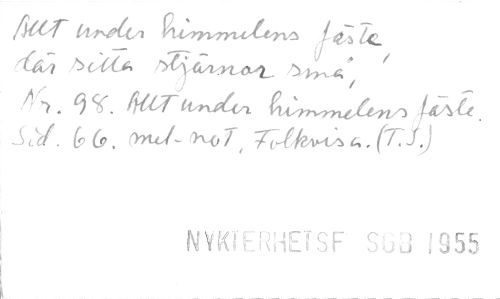 Allt under himmelens fäste,
där sitta stjärnor små,
Nr. 98. Allt under himmelens fäste.
Sid. 66. mel-not, Folkvisa. (T.S.)
NYKTERHETSF SGB 1955